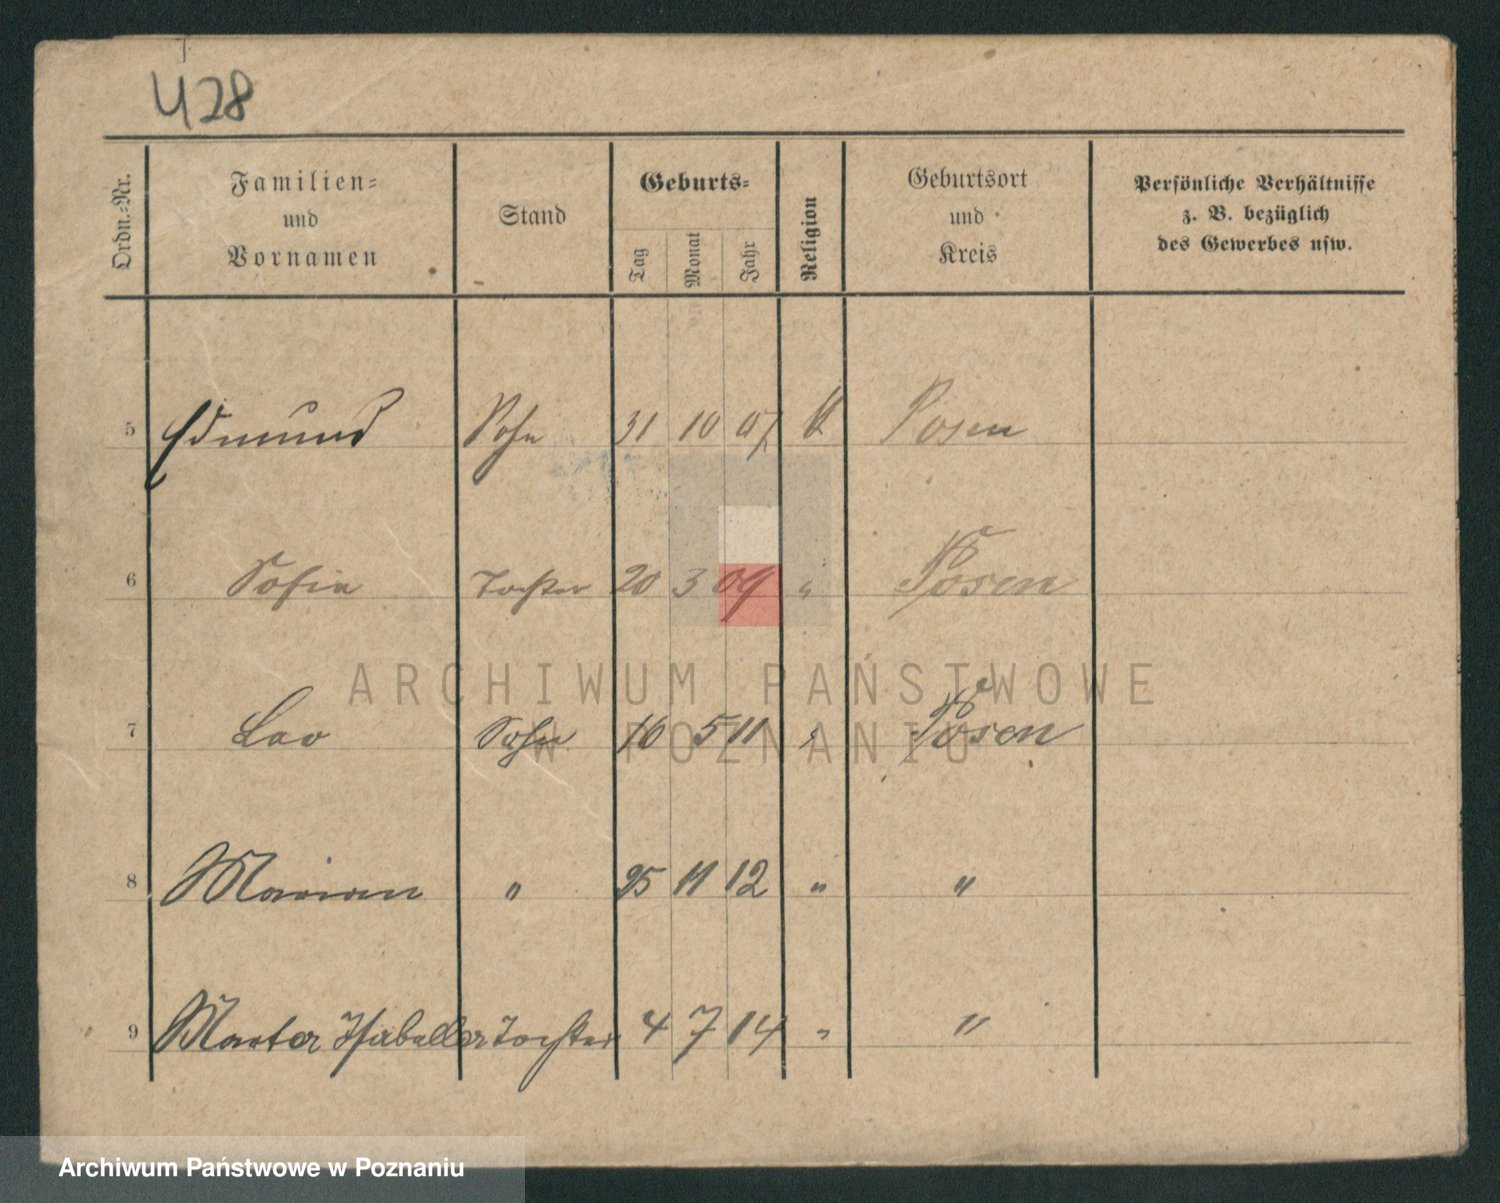 428
Ordn.=Nr.
Familien=
und
Vornamen
Stand
Geburts=
Tag Monat Jahr
Religion
Geburtsort
und
Kreis
Persönliche Verhältnisse
z. B. bezüglich
des Gewerbes usw.
5 Edmund Sohn 31 10 07 k Posen
6 Sofie Tochter 20 3 09 " Posen
7 Leo Sohn 16 5 11 " Posen
8 Marian " 25 11 12 " "
9 Marta Isabella Tochter 4 7 14 " "
ARCHIWUM PAŃSTWOWE
W POZNANIU
Archiwum Państwowe w Poznaniu